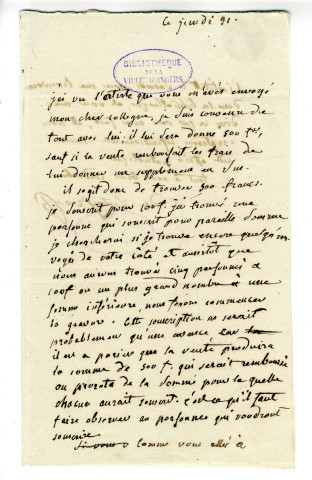 ce jeudi 91.
BIBLIOTHEQUE
DE LA
VILLE D'ANGERS
j'ai vu l'artiste que vous m'avés envoyé
mon cher collegue, je suis convenu de
tout avec lui. il lui sera donné 500 f.cs,
sauf si la vente rembourfait les frais de
lui donner un supplement en sus.
il sagit donc de trouver 500 francs.
je souscrit pour 100f. j'ai trouvé une
personne qui souscrit pour pareille somme
je chercherai si je trouve encore quelqu'un
voyés de votre coté, et aussitot que
nous aurons trouvés cinq personnes à
100f ou un plus grand nombre à une
somme inférieure nous ferons commencer
la gravure. Cette souscription ne serait
probablement qu'une avance car
il est a parier que la vente produira
la somme de 500 f. qui serait remboursée
au prorata de la somme pour la quelle
chacun aurait souscrit. c'est ce qu'il faut
faire observer aux personnes qui voudront
souscrire
comme vous allés à